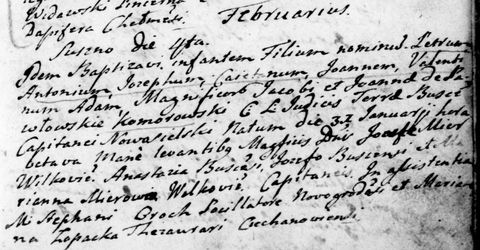 Widawski Pincerna
Dapifera Chelmensi
Februarius.
Suszno die 4ta.
Idem Baptizavi infantem Filium nominibus Petrum
Antonium, Josephum, Caietanum, Joannem, Valenti
num Adam, Magnificorum Jacobi et Joannæ de
włowskie Komorowski C L Judicis Terræ Buscè
Capitanei Nowosielski Natum die 3tia Januarii hora
octava Mane levantibus Magficis Dnis Josefo Mier
Wilkovic. Anastazia Buscès, Jozefo Buscensi et
rianna Mierowa Wilkovic. Capitaneis, In assistentia
M Stephani Oroch Pocillatore Novogrodès et Marian
na Łopacka Thezaurari Ciechanoviensi.